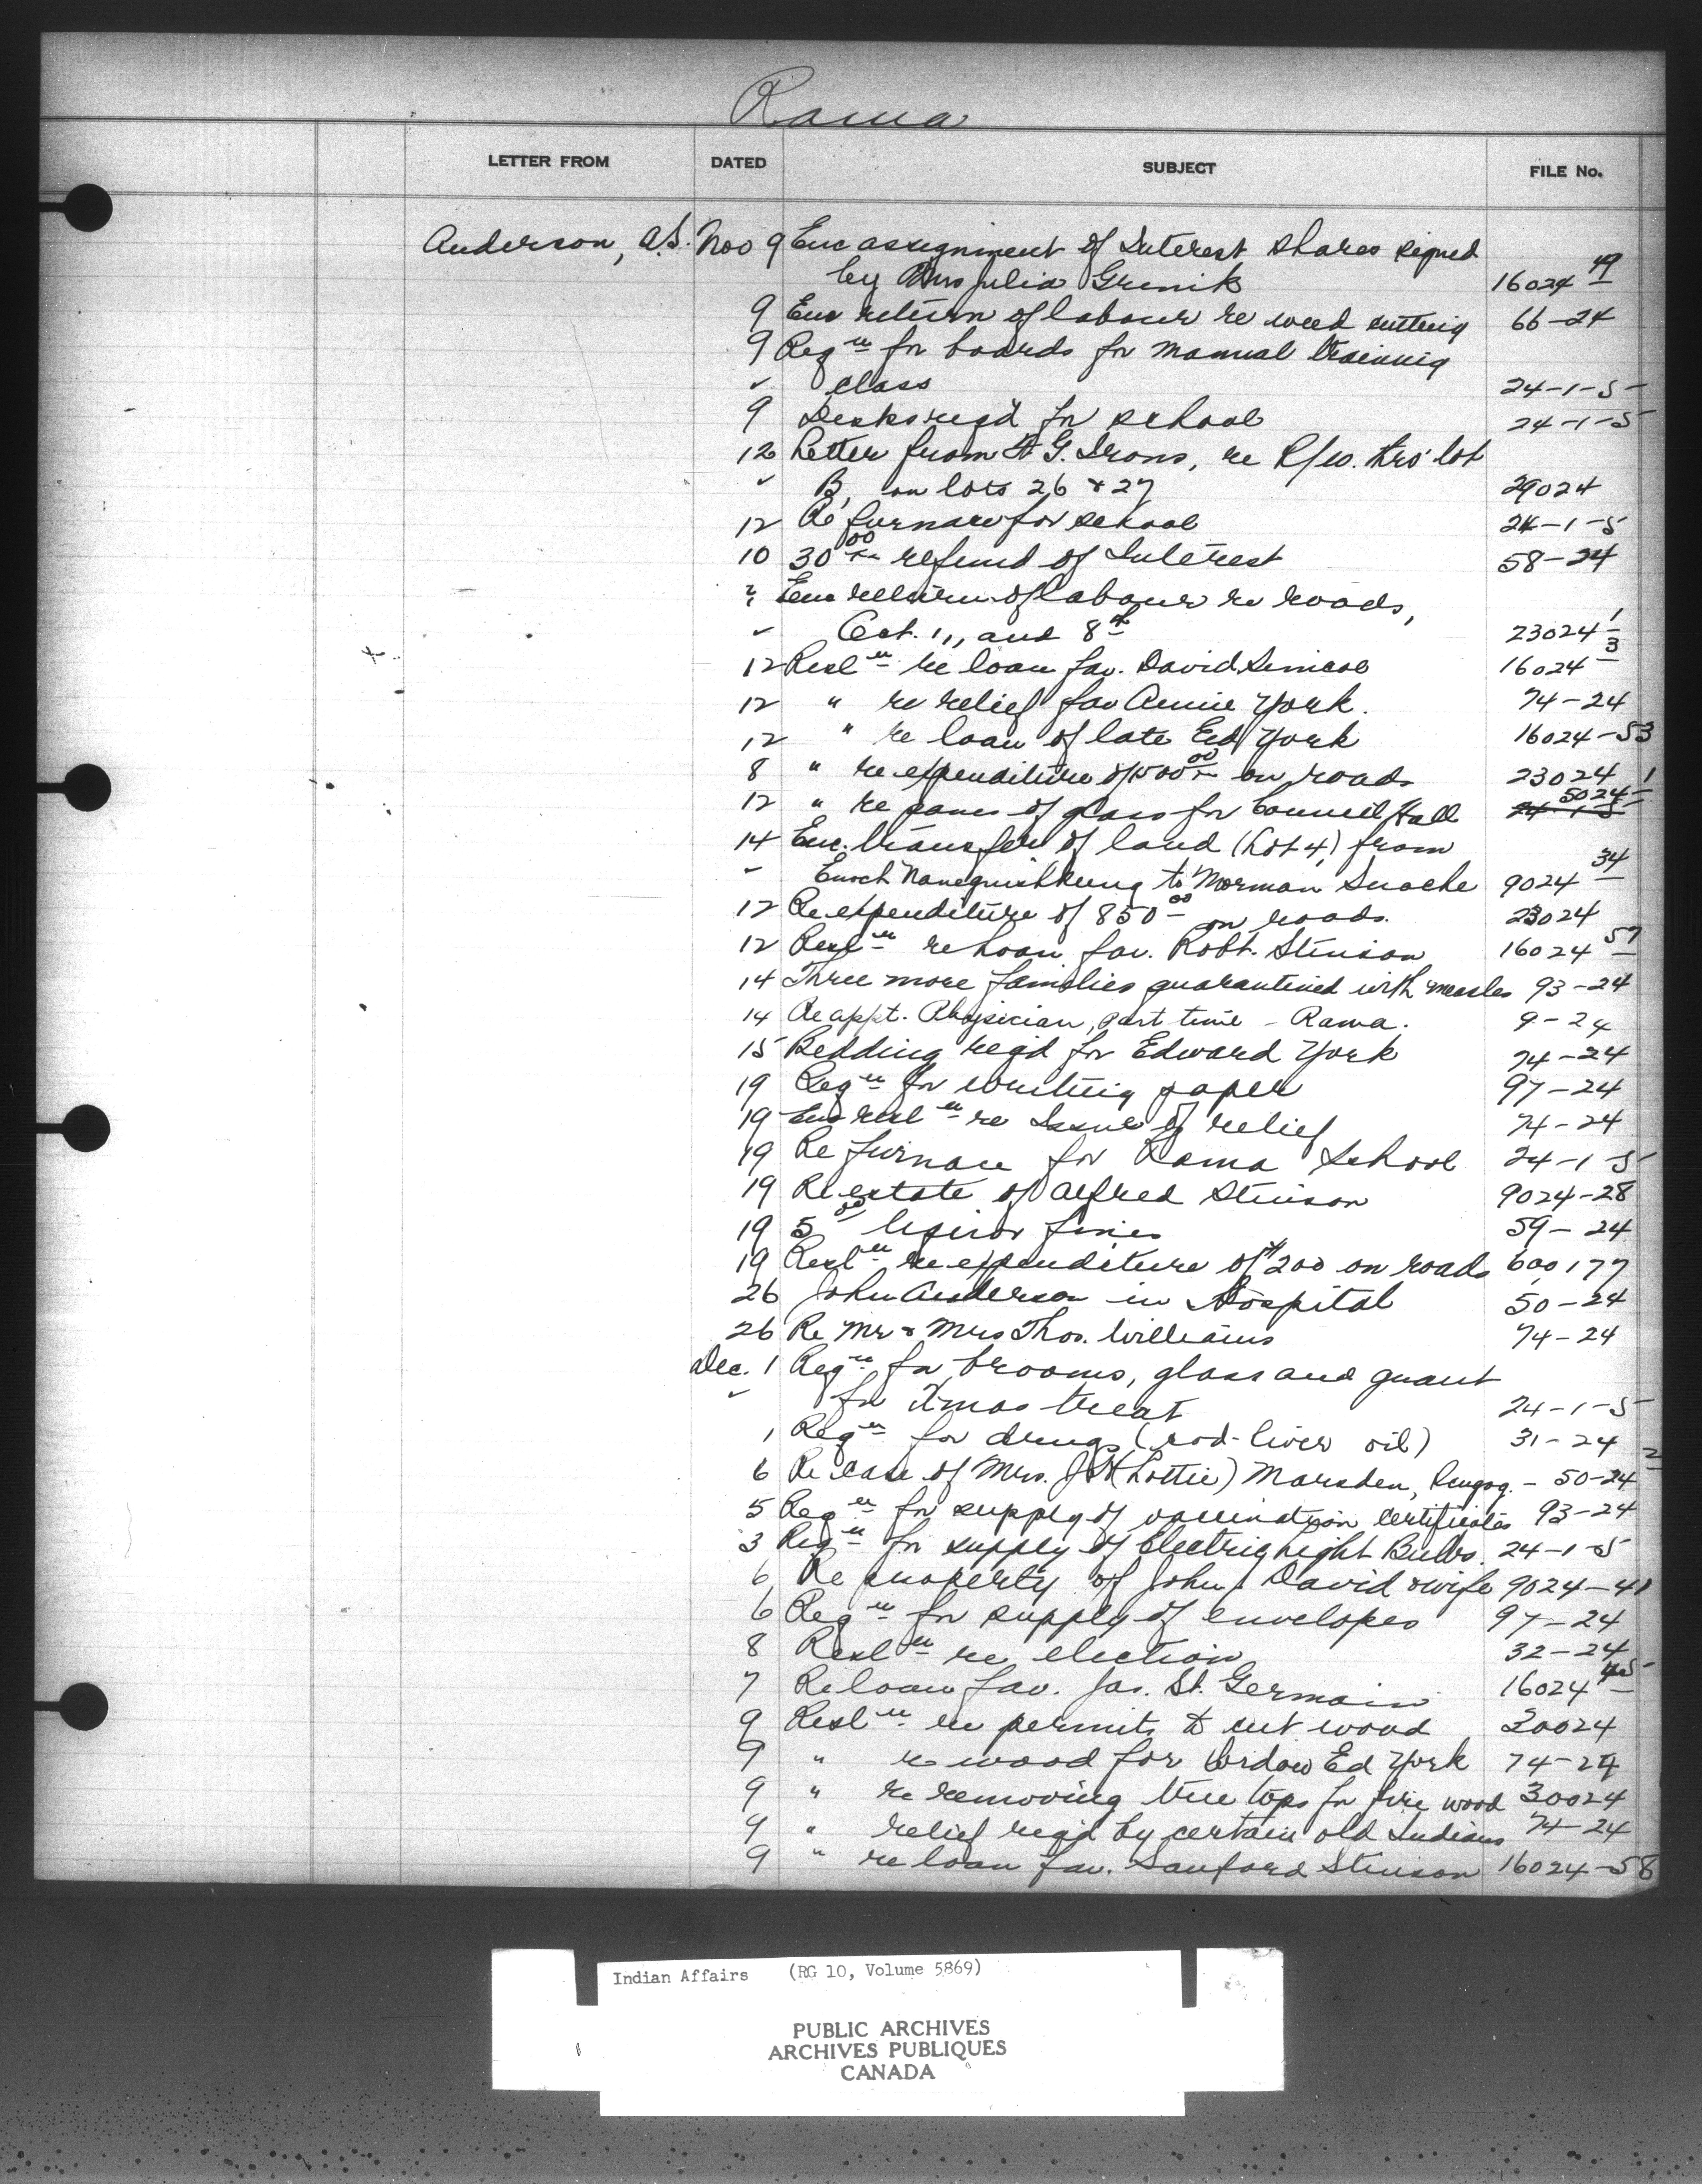 Rama
LETTER FROM DATED SUBJECT FILE No.
Anderson, A.S. Nov 9 Enc assignment of Interest shares signed
by Mrs Julia Grenik 16024 49
9 Enc return of labour re weed cutting 66-24
9 Reqn for boards for manual training
class 24-1-5
9 Desks req'd for school 24-1-5
12 Letter from G. Irons, re R/w. thro' lot
B, on lots 26 & 27 29024
12 Re furnace for school 24-1-5
10 30 00 refund of Interest 58-24
Enc return of labour re roads,
Oct. 1, and 8th 23024 1
12 Resln re loan fav. David Simcoe 16024 3
12 " re relief fav Annie York. 74-24
12 " re loan of late Ed York 16024-53
8 " re expenditure of 500 00 on roads 23024 1
12 " re panes of glass for Council Hall 5024
14 Enc. transfer of land (Lot 4) from
Enoch Nanegishkung to Norman Snache 9024 34
12 Re expenditure of 850 00 on roads. 23024
12 Resln re Loan fav. Robt. Stinson 16024 57
14 Three more families quarantined with measles 93-24
14 Re appt. Physician, part time - Rama. 9-24
15 Bedding req'd for Edward York 74-24
19 Reqn for writing paper 97-24
19 Enc resln re Issue of relief 74-24
19 Re furnace for Rama School 24-1-5
19 Re estate of Alfred Stinson 9024-28
19 5 00 liquor fines 59-24
19 Resln re expenditure of $200 on roads 600,177
26 John Anderson in Hospital 50-24
26 Re Mr & Mrs Thos. Williams 74-24
Dec. 1 Reqn for brooms, glass and grant
for Xmas treat 24-1-5
1 Reqn for drugs (cod-liver oil) 31-24
6 Re case of Mrs. J (Lottie) Marsden, - 50-24 2
5 Reqn for supply of vaccination certificates 93-24
3 Reqn for supply of Electric Light Bulbs. 24-1-5
6 Re property of John David & wife 9024-41
6 Reqn for supply of envelopes 97-24
8 Resln re election 32-24
7 Re loan fav. Jas. St. Germain 16024 45
9 Resln re permits to cut wood 30024
9 " re wood for Widow Ed York 74-24
9 " re removing tree tops for fire wood 30024
9 " relief req'd by certain old Indians 74-24
9 " re loan fav. Sanford Stinson 16024-58
Indian Affairs (RG 10, Volume 5869)
PUBLIC ARCHIVES
ARCHIVES PUBLIQUES
CANADA